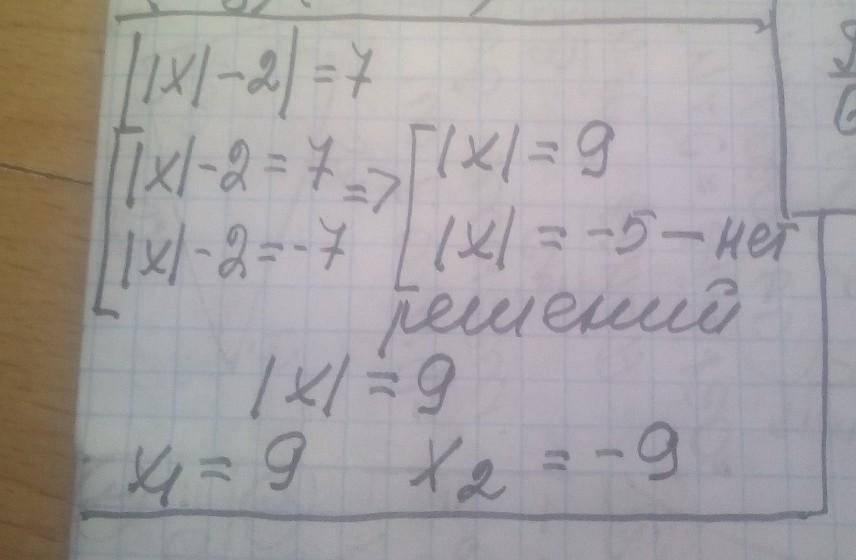 ||x| - 2| = 7
|x| - 2 = 7 => |x| = 9
|x| - 2 = -7 |x| = -5 - нет
решений
|x| = 9
x₁ = 9 x₂ = -9